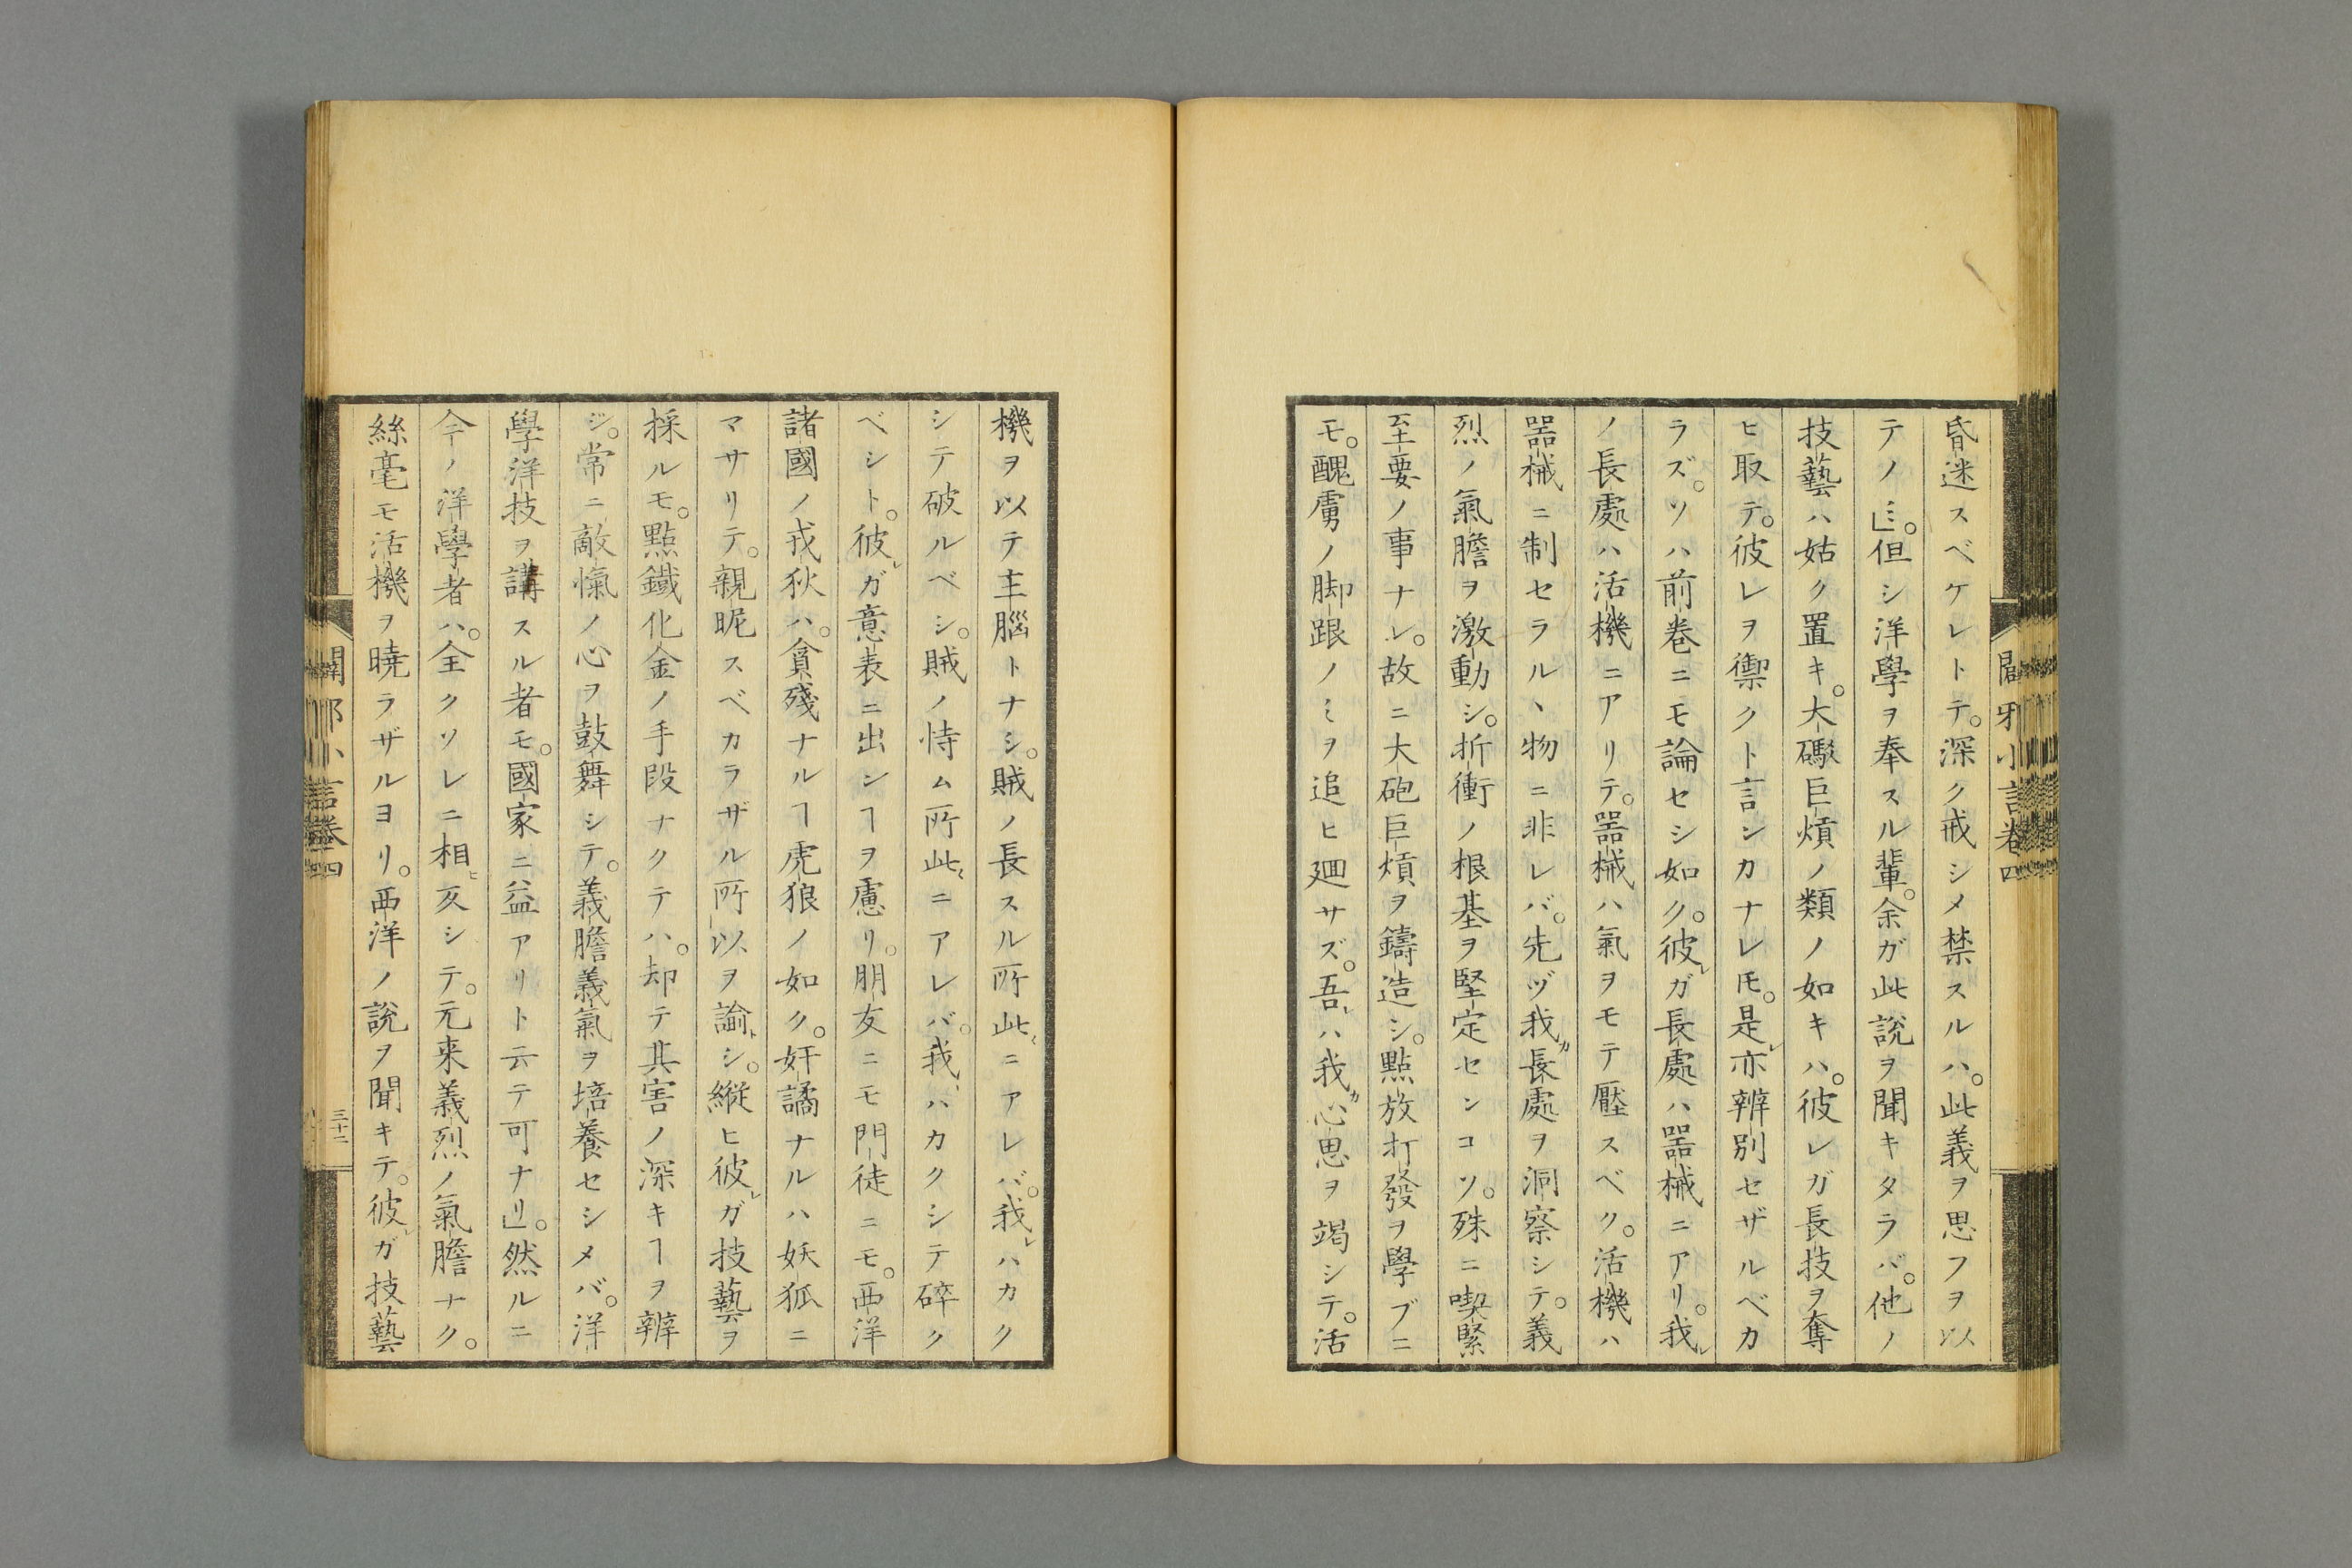 昏迷スベケレトテ。深ク戒シメ禁スルハ。此義ヲ思フヲ以
テノミ」。但シ洋學ヲ奉スル輩。余ガ此說ヲ聞キタラバ。他ノ
技藝ハ姑ク置キ。大礟巨熕ノ類ノ如キハ。彼レガ長技ヲ奪
ヒ取テ。彼レヲ禦クト言ンカナレ𪜈。是レ亦辨別セザルベカ
ラズ。ソハ前卷ニモ論セシ如ク。彼レガ長處ハ噐械ニアリ。我レ
ノ長處ハ活機ニアリテ。噐械ハ氣ヲモテ壓スベク。活機ハ
噐械ニ制セラルヽ物ニ非レバ。先ヅ我ガ長處ヲ洞察シテ。義
烈ノ氣膽ヲ激動シ。折衝ノ根基ヲ堅定センコソ。殊ニ喫緊
至要ノ事ナレ。故ニ大砲巨熕ヲ鑄造シ。點放打發ヲ學ブニ
モ。醜虜ノ脚跟ノミヲ追ヒ廻サズ。吾レハ我ガ心思ヲ竭シテ。活
闢邪小言卷四
機ヲ以テ主腦トナシ。賊ノ長スル所此ニアレバ。我レハカク
シテ破ルベシ。賊ノ恃ム所此ニアレバ。我ハカクシテ碎ク
ベシト。彼レガ意表ニ出シヿヲ慮リ。朋友ニモ門徒ニモ。西洋
諸國ノ戎狄ハ。貪殘ナルヿ虎狼ノ如ク。奸譎ナルハ妖狐ニ
マサリテ。親昵スベカラザル所以ヲ諭シ。縱ヒ彼レガ技藝ヲ
採ルモ。點鐵化金ノ手段ナクテハ。却テ其害ノ深キヿヲ辨
ジ。常ニ敵愾ノ心ヲ鼓舞シテ。義膽義氣ヲ培養セシメバ。洋
學洋技ヲ講スル者モ。國家ニ益アリト云テ可ナリ」。然ルニ
今ノ洋學者ハ。全クソレニ相ヒ反シテ。元来義烈ノ氣膽ナク。
絲毫モ活機ヲ曉ラザルヨリ。西洋ノ說ヲ聞キテ。彼レガ技藝
闢邪小言卷四
三十二